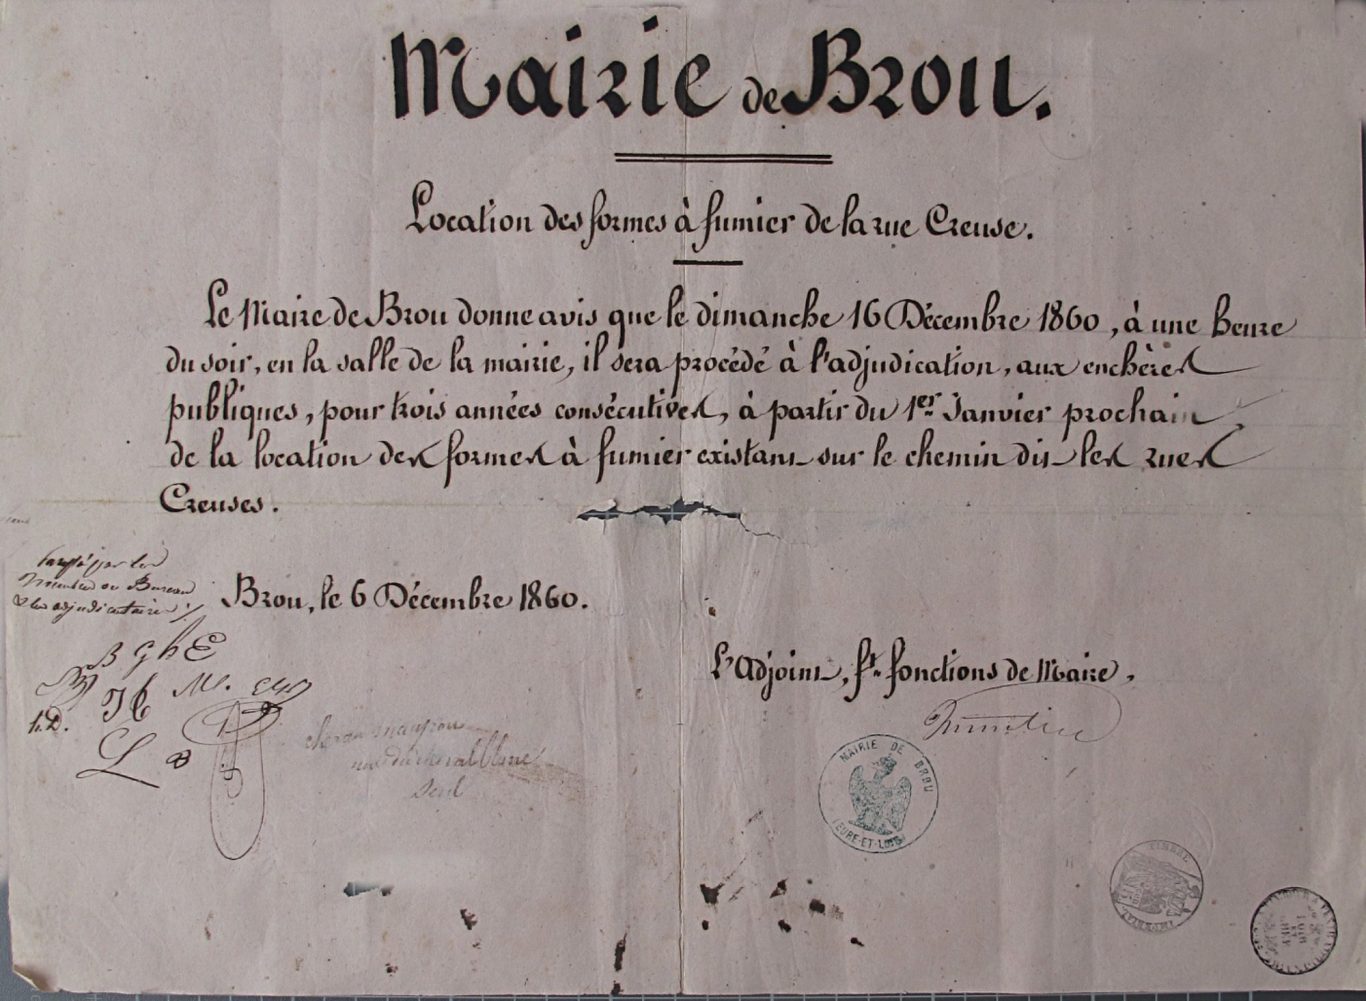 Mairie de Brou.
Location des formes à fumier de la rue Creuse.
Le Maire de Brou donne avis que le dimanche 16 Décembre 1860, à une heure
du soir, en la salle de la mairie, il sera procédé à l'adjudication, aux enchères
publiques, pour trois années consécutives, à partir du 1er Janvier prochain
de la location des formes à fumier existant sur le chemin dit les rues
Creuses.
Brou, le 6 Décembre 1860.
L'Adjoint, ft. fonctions de Maire,
MAIRIE DE BROU
EURE-ET-LOIR
TIMBRE
IMPERIAL